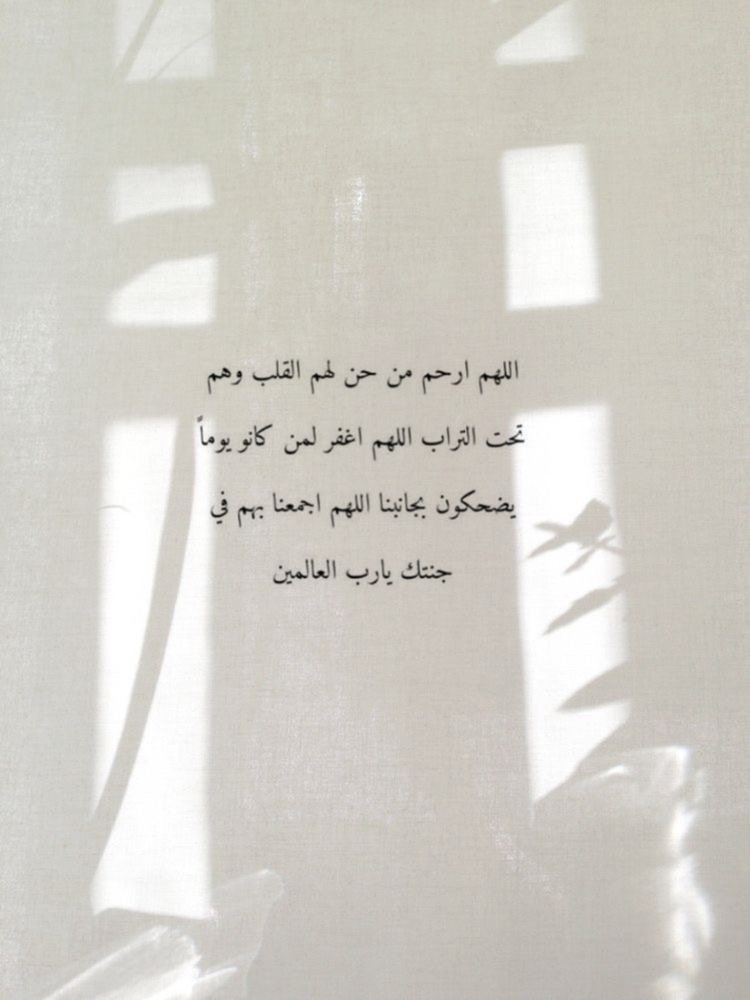 اللهم ارحم من حن لهم القلب وهم
تحت التراب اللهم اغفر لمن كانو يوماً
يضحكون بجانبنا اللهم اجمعنا بهم في
جنتك يارب العالمين